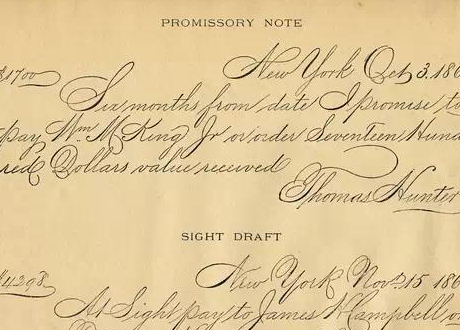 PROMISSORY NOTE
$1700 New York Oct 3. 186
Six months from date I promise to
pay Wm. M King Jr or order Seventeen Hund
red Dollars value received
Thomas Hunter
SIGHT DRAFT
$4298 New York Nov. 15 186
At Sight pay to James Campbell or